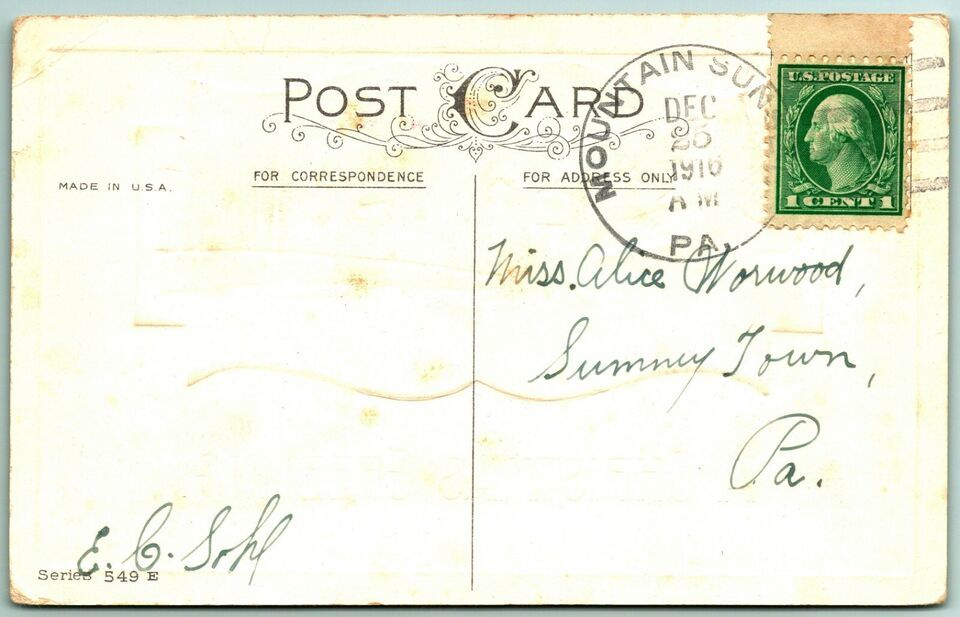 POST CARD
FOR CORRESPONDENCE
FOR ADDRESS ONLY
MADE IN U.S.A.
MOUNTAIN SUN
DEC
1916
AM
PA.
U.S. POSTAGE
1 CENT 1
Miss. Alice Norwood,
Sumney Town,
Pa.
E. C. Sohl
Series 549 E